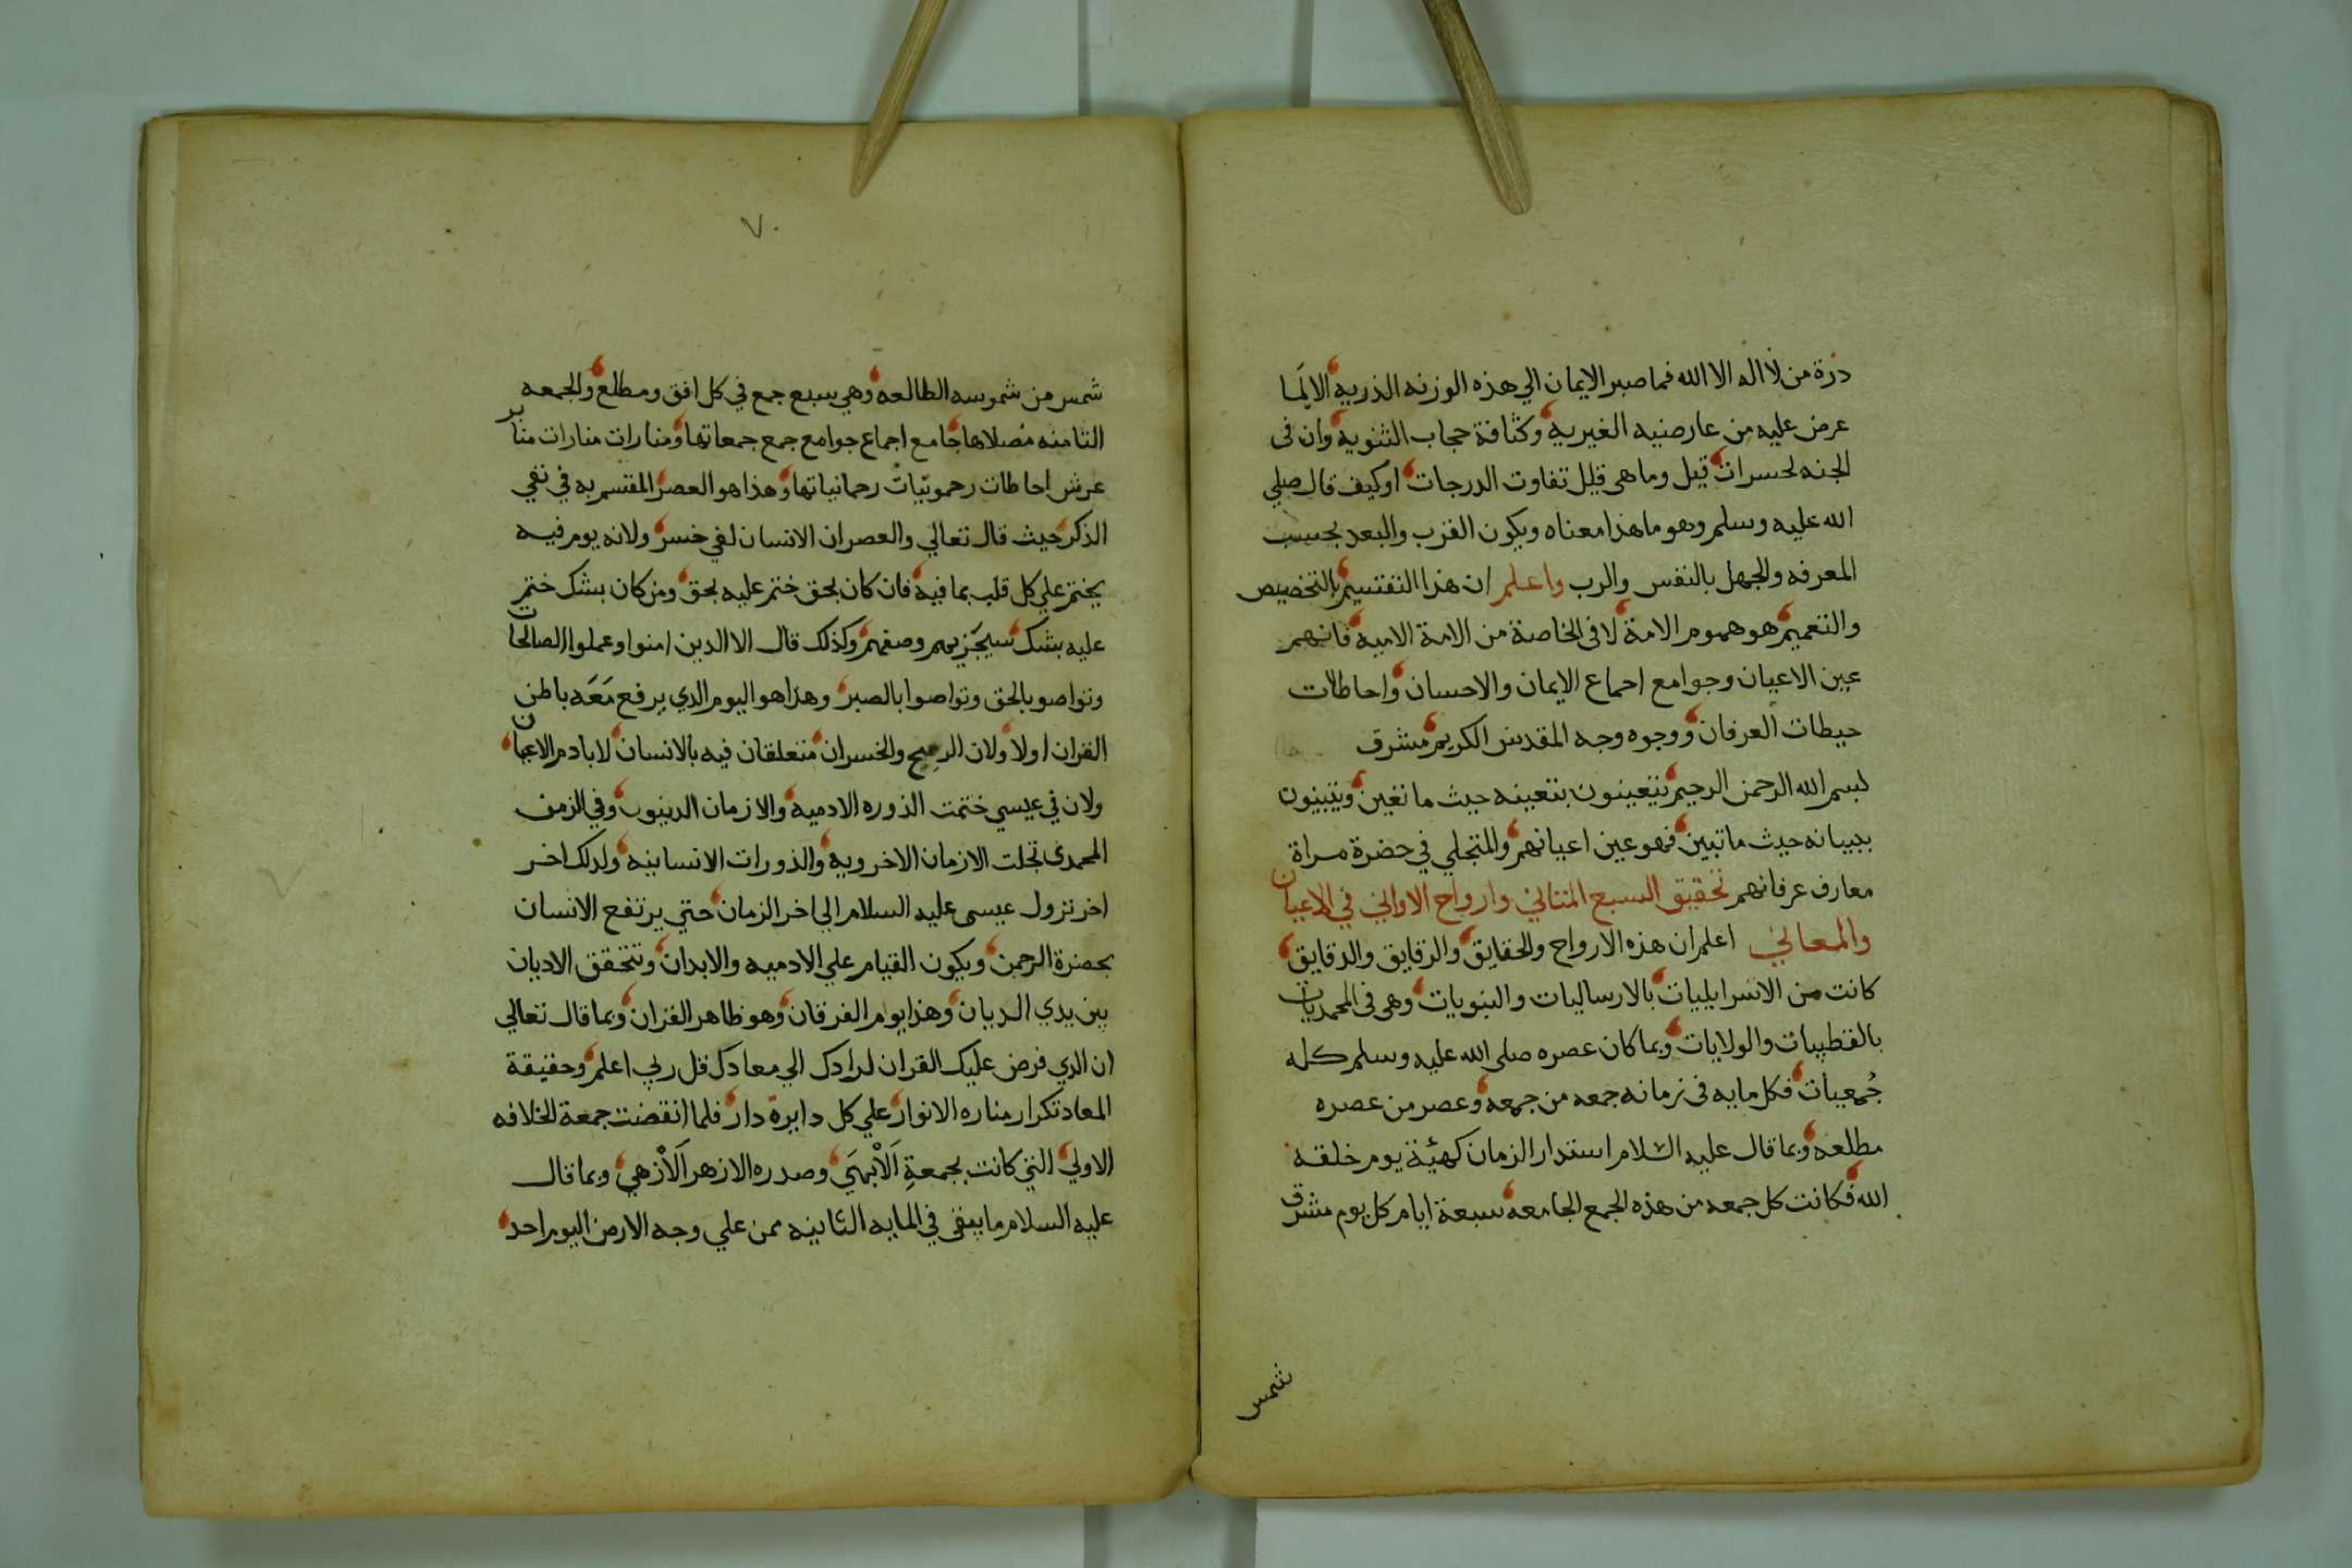 ذرة من لا اله الا الله فما صير الايمان الي هذه الوزنه الذريه الا لما
عرض عليه من عارضيه الغيريه وكثافة حجاب الثنويه وان في
الجنه لحسرات قيل وما هي قليل تفاوت الدرجات او كيف قال صلي
الله عليه وسلم وهو ما هذا معناه ويكون القرب والبعد بحسب
المعرفه والجهل بالنفس والرب واعلم ان هذا التقسيم بالتخصيص
والتعميم هو هموم الامة لا في الخاصة من الامة الاميه فانهم
عين الاعيان وجوامع اجماع الايمان والاحسان واحاطات
حيطات العرفان ووجوه وجه المقدس الكريم مشرق
لبسم الله الرحمن الرحيم يتعينون بتعينه حيث ما تعين ويتبينون
ببيانه حيث ما تبين فهو عين اعيانهم والمتجلي في حضرة مراة
معارف عرفانهم تحقيق السبع المثاني وارواح الاواني في الاعيان
والمعاني اعلم ان هذه الارواح والحقايق والرقايق والدقايق
كانت من الاسرايليات بالارساليات والنبويات وهي في المحمديات
بالقطبيات والولايات وبما كان عصره صلي الله عليه وسلم كله
جُمعيات فكل مايه في زمانه جمعه من جمعه وعصر من عصره
مطلعه وبما قال عليه السلام استدار الزمان كهيئة يوم خلقه
الله فكانت كل جمعه من هذه الجمع الجامعه سبعة ايام كل يوم مشرق
شمس
٧٠
شمس من شموسه الطالعه وهي سبع جمع في كل افق ومطلع والجمعه
الثامنه مصلاها جامع اجماع جوامع جمع جمعاتها ومنارات منارات منابر
عرش احاطات رحمونيات رحمانياتها وهذا هو العصر المقسم به في نفي
الذكر حيث قال تعالي والعصر ان الانسان لفي خسر ولانه يوم فيه
يختم علي كل قلب بما فيه فان كان بحق ختم عليه بحق ومن كان بشك ختم
عليه بشك سيجزيهم وصفهم وكذلك قال الا الدين امنوا وعملوا الصالحات
وتواصو بالحق وتواصوا بالصبر وهذا هو اليوم الدي يرفع مَعَه باطن
القران اولا ولان الربح والخسران متعلقان فيه بالانسان لا بادم الاعيان
ولان في عيسي ختمت الدوره الادميه والازمان الدينوب وفي الزمن
المحمدي تجلت الازمان الاخرويه والدورات الانسانيه ولدلك اخر
اخر نزول عيسي عليه السلام الي اخر الزمان حتي يرتفع الانسان
بحضرة الرحمن ويكون القيام علي الادميه والابدان وتتحقق الاديان
بين يدي الديان وهذا يوم الفرقان وهو ظاهر القران وبما قال تعالي
ان الدي فرض عليك القران لرادك الي معاد قل ربي اعلم وحقيقة
المعاد تكرار مناره الانوار علي كل دايرة دار فلما انقضت جمعة الخلافه
الاولي التي كانت بجمعةِ اَلاَبْهَي وصدره الازهر اَلاَزْهي وبما قال
عليه السلام ما يبقي في المايه الثانيه ممن علي وجه الارض اليوم احد